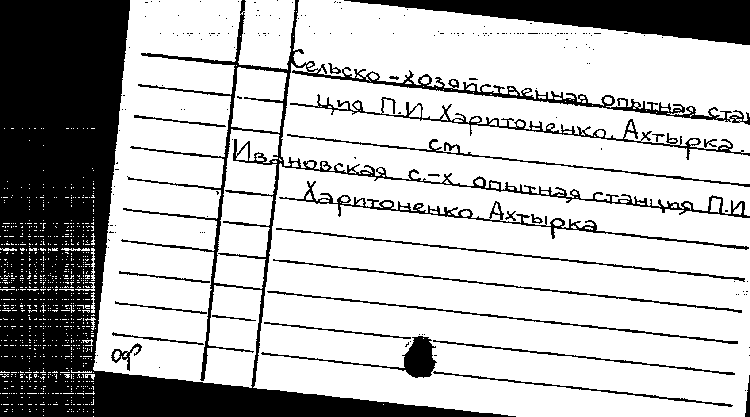 Сельско-хозяйственная опытная стан
ция П.И. Харитоненко. Ахтырка.
см.
Ивановская с.-х. опытная станция П.И.
Харитоненко. Ахтырка
оф